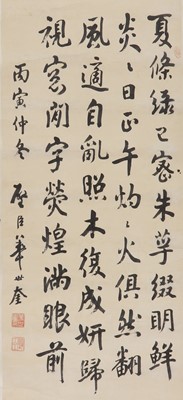 夏條緑已密朱萼綴明鮮
炎〻日正午灼〻火俱然翻
風適自亂照水復成妍歸
視窓間字熒煌滿眼前
丙寅仲冬 啓臣華世奎